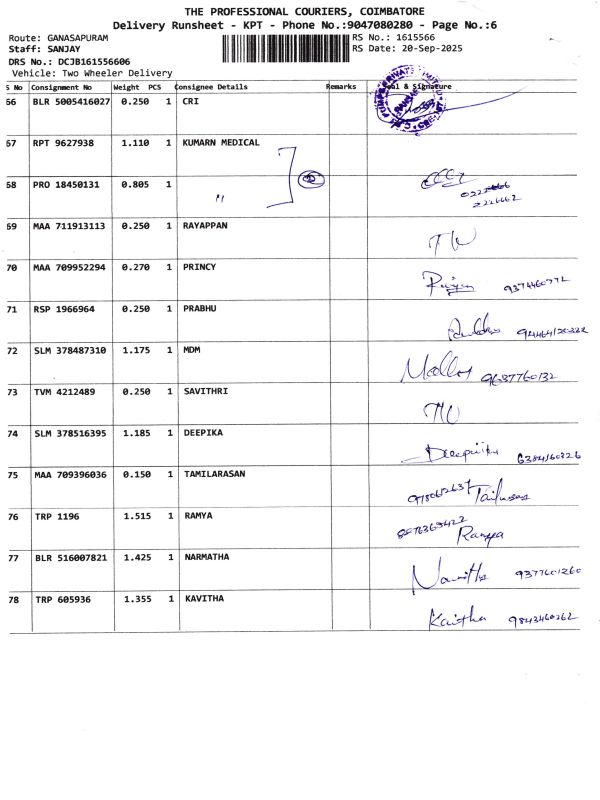 THE PROFESSIONAL COURIERS, COIMBATORE
Delivery Runsheet - KPT - Phone No.:9047080280 - Page No.:6
Route: GANASAPURAM RS No.: 1615566
Staff: SANJAY RS Date: 20-Sep-2025
DRS No.: DCJB161556606
Vehicle: Two Wheeler Delivery
S No Consignment No Weight PCS Consignee Details Remarks Seal & Signature
66 BLR 5005416027 0.250 1 CRI
67 RPT 9627938 1.110 1 KUMARN MEDICAL
68 PRO 18450131 0.805 1 "
2226662
69 MAA 711913113 0.250 1 RAYAPPAN
70 MAA 709952294 0.270 1 PRINCY 9374460772
71 RSP 1966964 0.250 1 PRABHU
72 SLM 378487310 1.175 1 MDM 9637760132
73 TVM 4212489 0.250 1 SAVITHRI
74 SLM 378516395 1.185 1 DEEPIKA Deepiika 6384160226
75 MAA 709396036 0.150 1 TAMILARASAN
76 TRP 1196 1.515 1 RAMYA Ramya
77 BLR 516007821 1.425 1 NARMATHA 9377601260
78 TRP 605936 1.355 1 KAVITHA Kavitha 9843460262